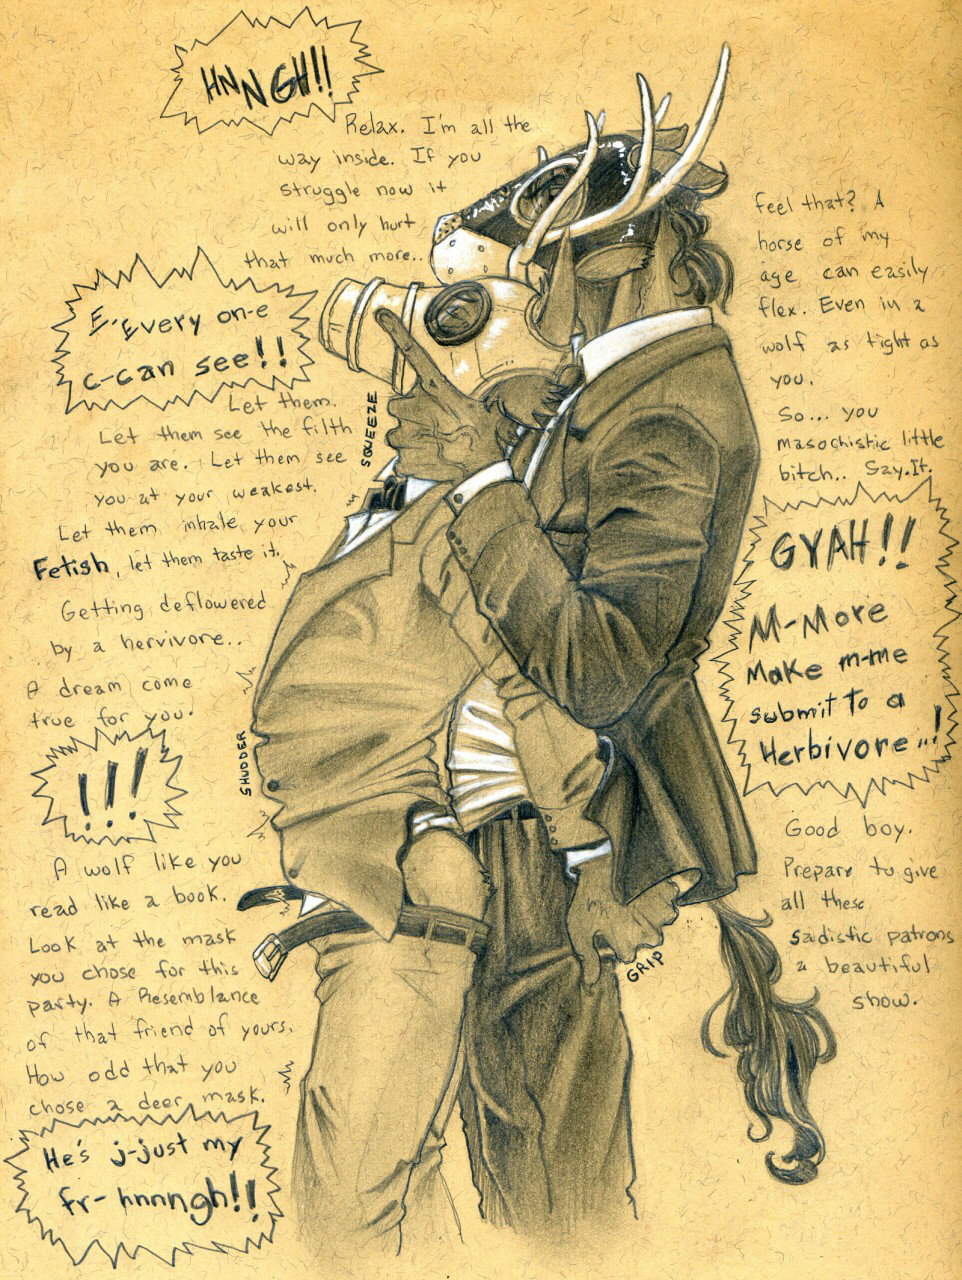 HNNGH!!
Relax. I'm all the
way inside. If you
struggle now it
will only hurt
that much more..
E-Every on-e
c-can see!!
Let them.
Let them see the filth
you are. Let them see
you at your weakest.
Let them inhale your
Fetish, let them taste it.
Getting deflowered
by a hervivore..
A dream come
true for you.
!!!
A wolf like you
read like a book.
Look at the mask
you chose for this
party. A Resemblance
of that friend of yours.
How odd that you
chose a deer mask.
He's j-just my
fr-hnnngh!!
SQUEEZE
SHUDDER
GRIP
Feel that? A
horse of my
age can easily
flex. Even in a
wolf as tight as
you.
So... you
masochistic little
bitch.. Say.It.
GYAH!!
M-More
Make m-me
submit to a
Herbivore...!
Good boy.
Prepare to give
all these
sadistic patrons
a beautiful
show.